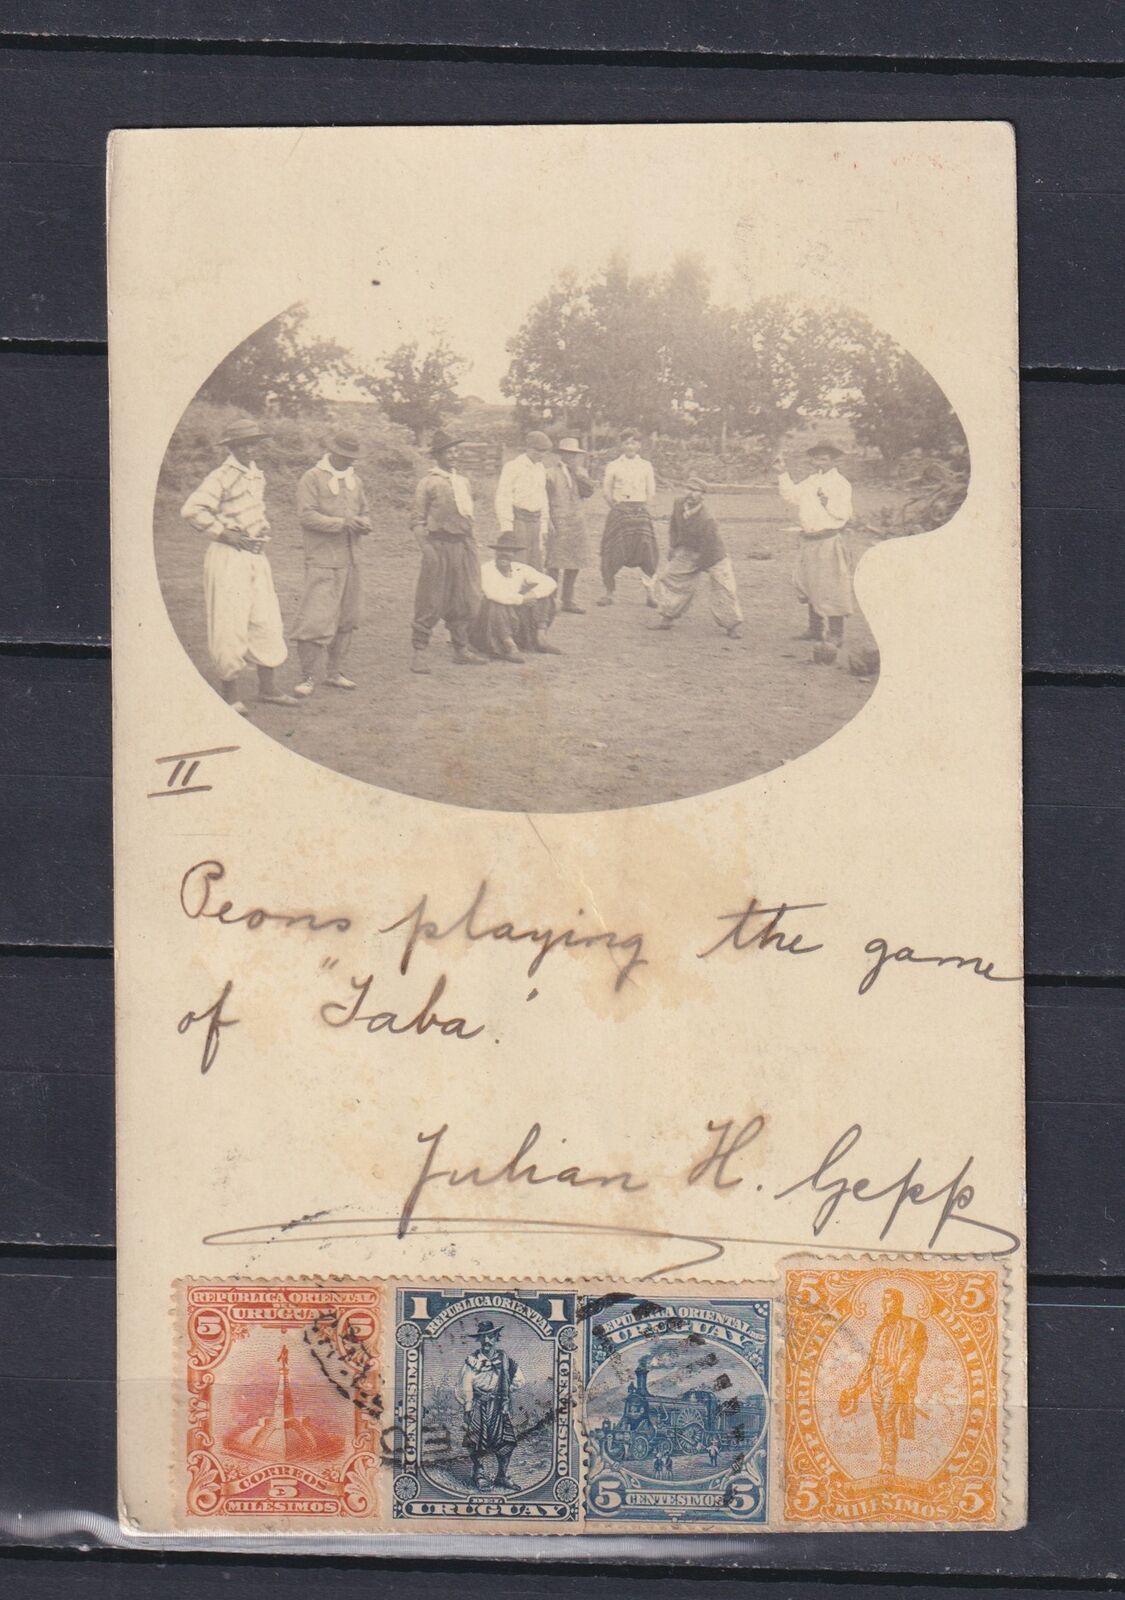 II
Peons playing the game
of "Taba."
Julian H. Gepp
REPÚBLICA ORIENTAL
DEL
URUGUAY
5 5
CORREOS
5
MILÉSIMOS
1 1
REPUBLICA ORIENTAL
1 CENTESIMO
1 CENTESIMO
DEL
URUGUAY
REPUBLICA ORIENTAL
DEL
URUGUAY
5 CENTESIMOS 5
5 5
REP. ORIENTAL
DEL URUGUAY
5 MILESIMOS 5